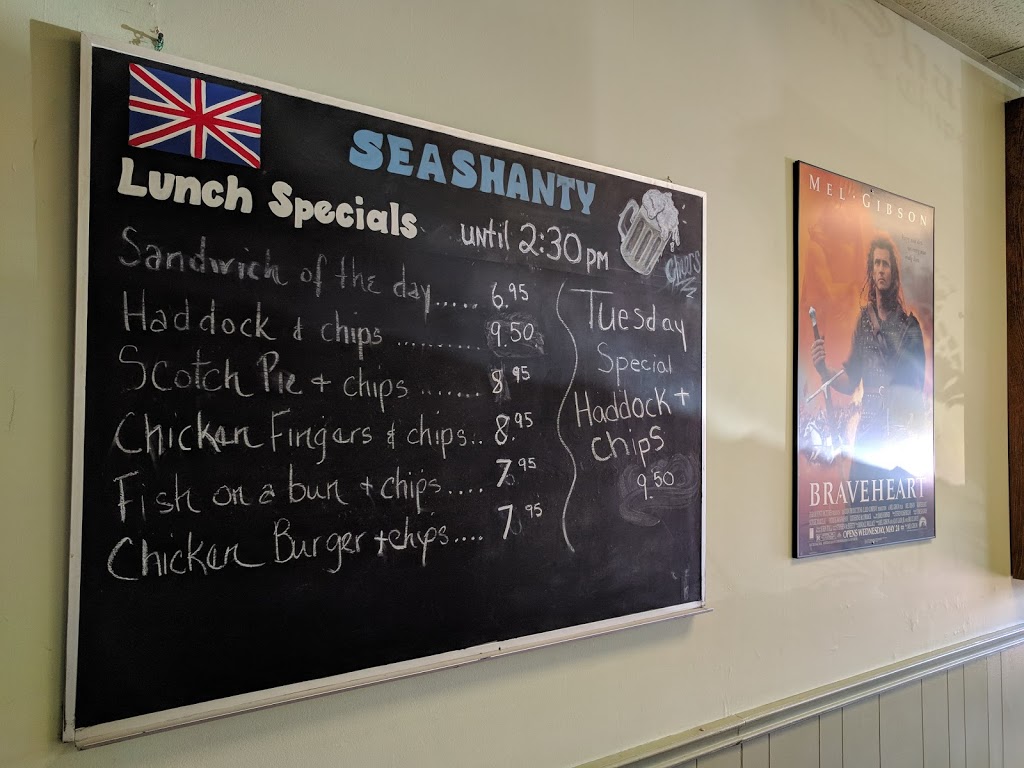 SEASHANTY
Lunch Specials until 2:30 pm
Sandwich of the day...... 6.95
Haddock & chips .......... 9.50
Scotch Pie + chips ....... 8.95
Chicken Fingers & chips.. 8.95
Fish on a bun + chips..... 7.95
Chicken Burger + chips.... 7.95
Tuesday
Special
Haddock +
chips
9.50
MEL GIBSON
BRAVEHEART
OPENS WEDNESDAY, MAY 24